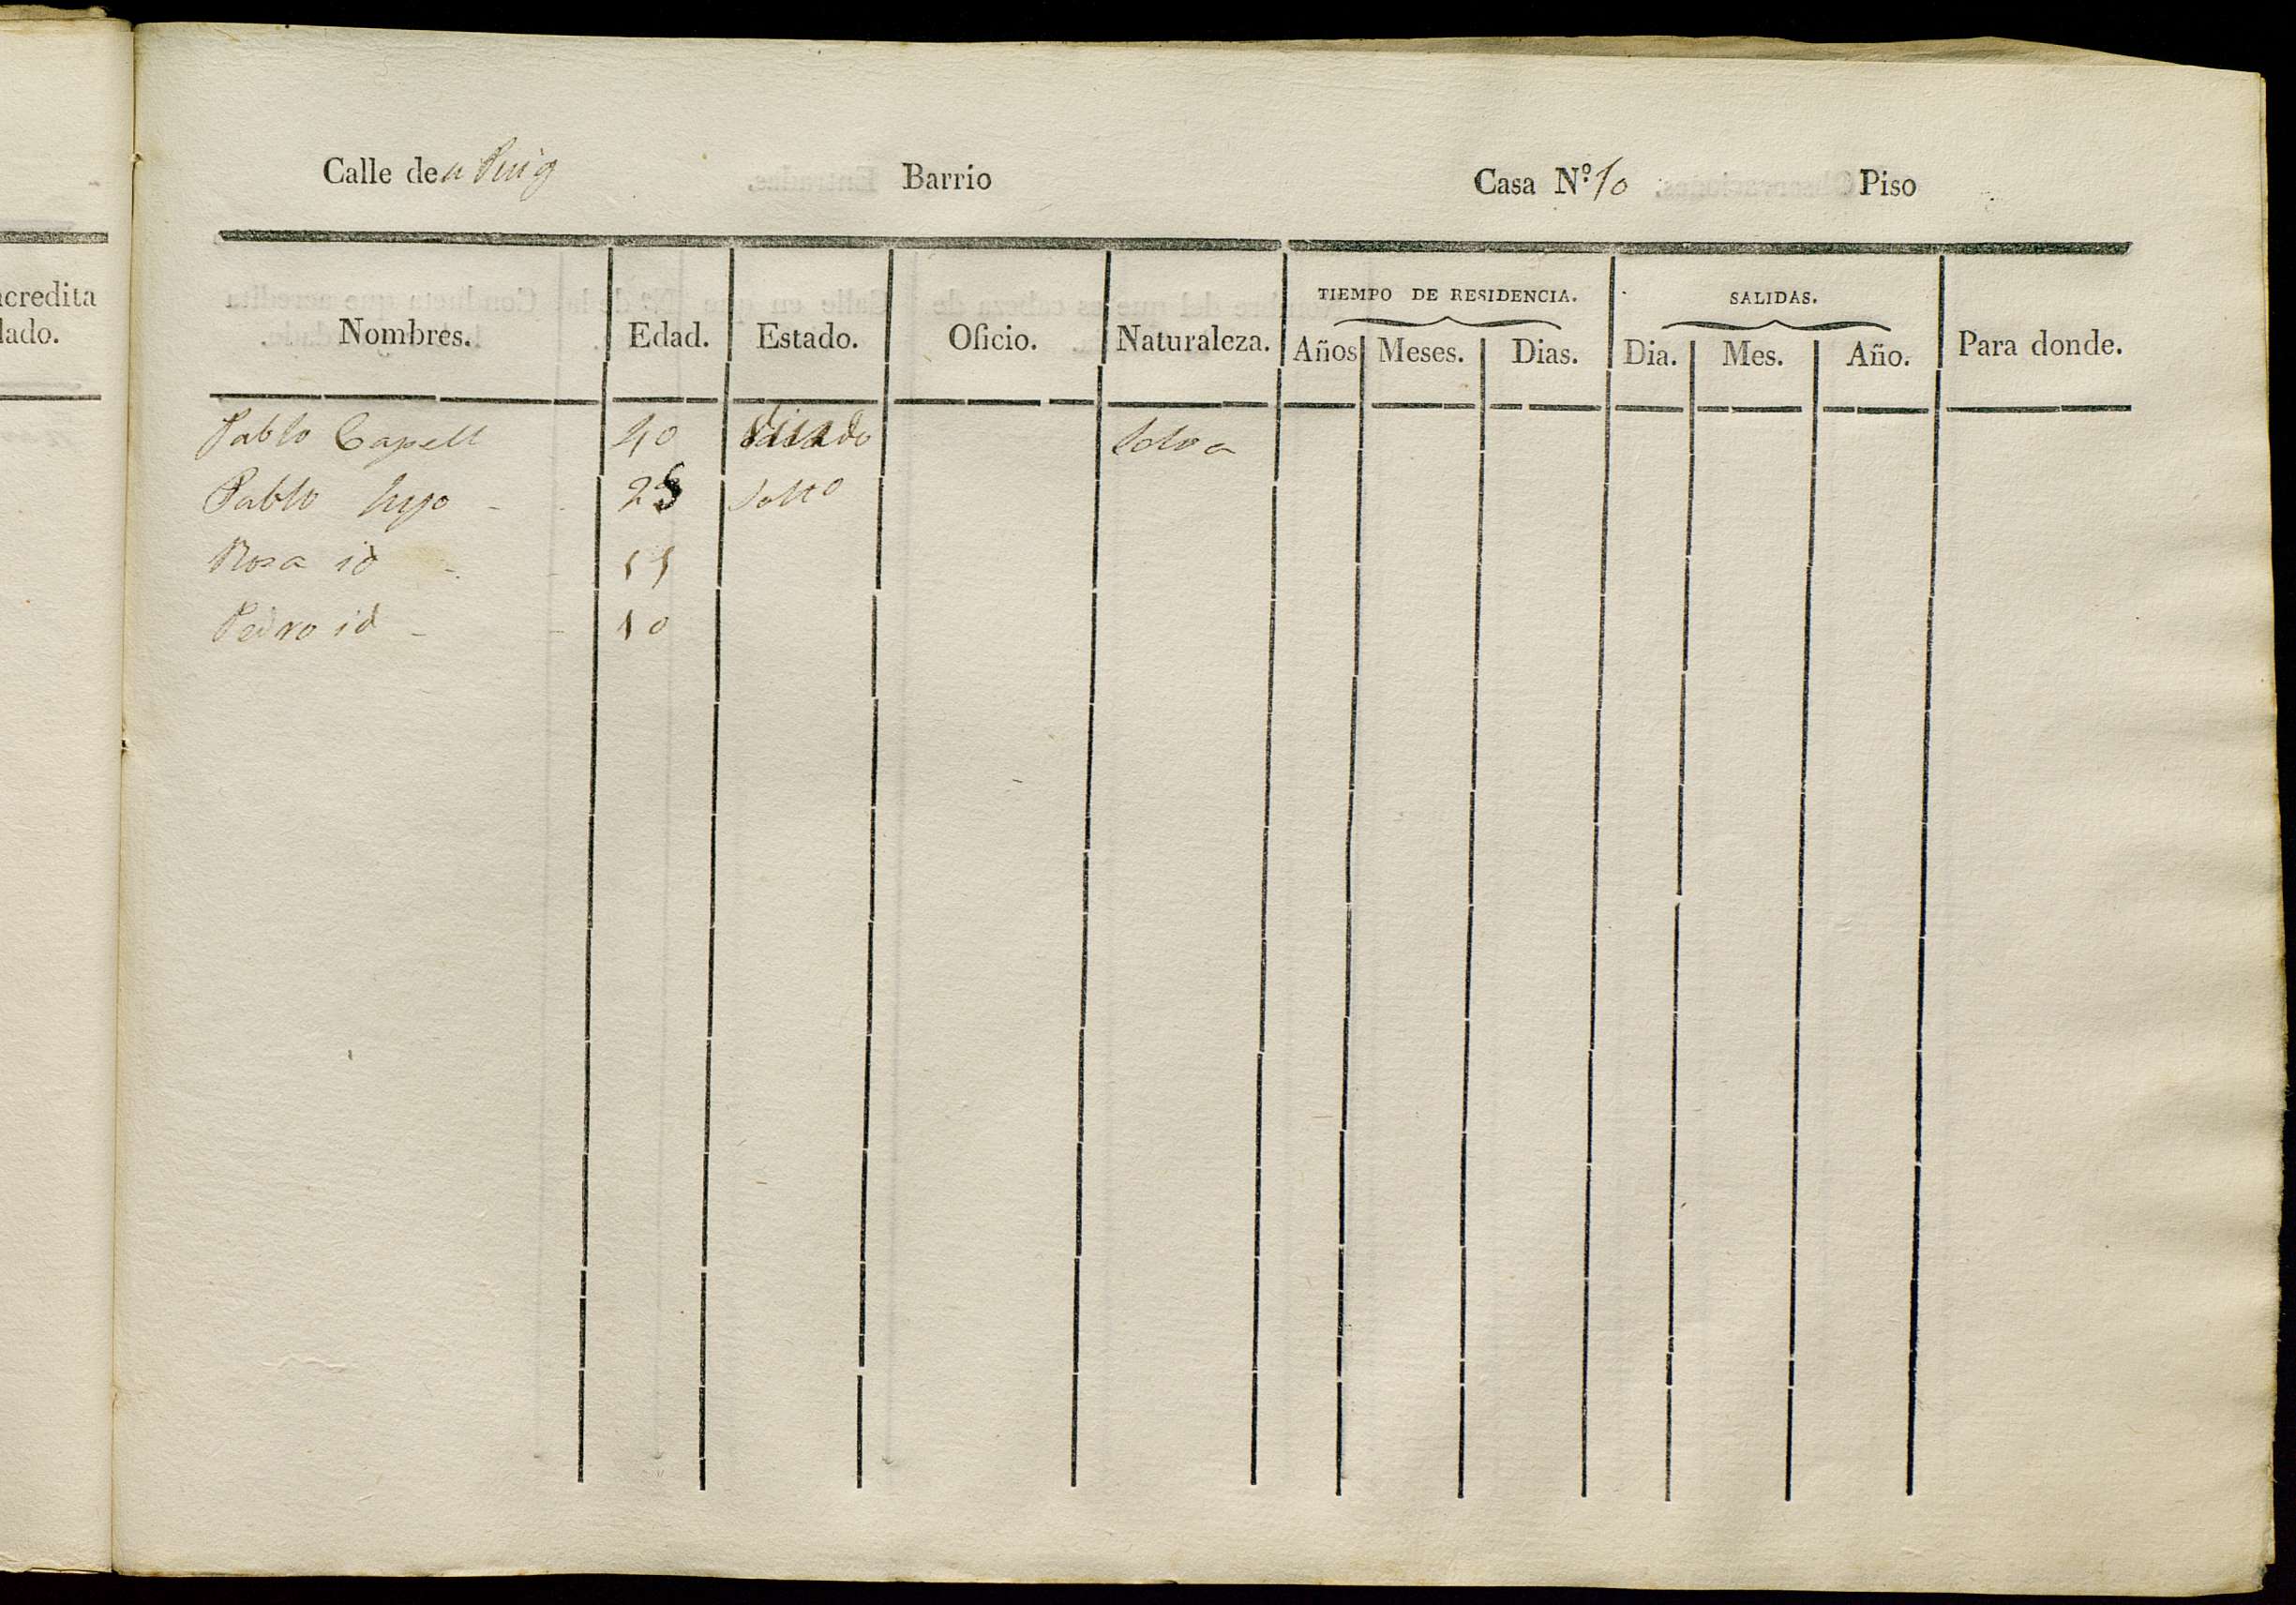 acredita
lado.
Calle de n Puig Barrio Casa Nº 10 Piso
Nombres. Edad. Estado. Oficio. Naturaleza. TIEMPO DE RESIDENCIA. Años Meses. Dias. SALIDAS. Dia. Mes. Año. Para donde.
Pablo Capell 40
Pablo hijo - 25 Solto
Rosa id - 15
Pedro id - 10